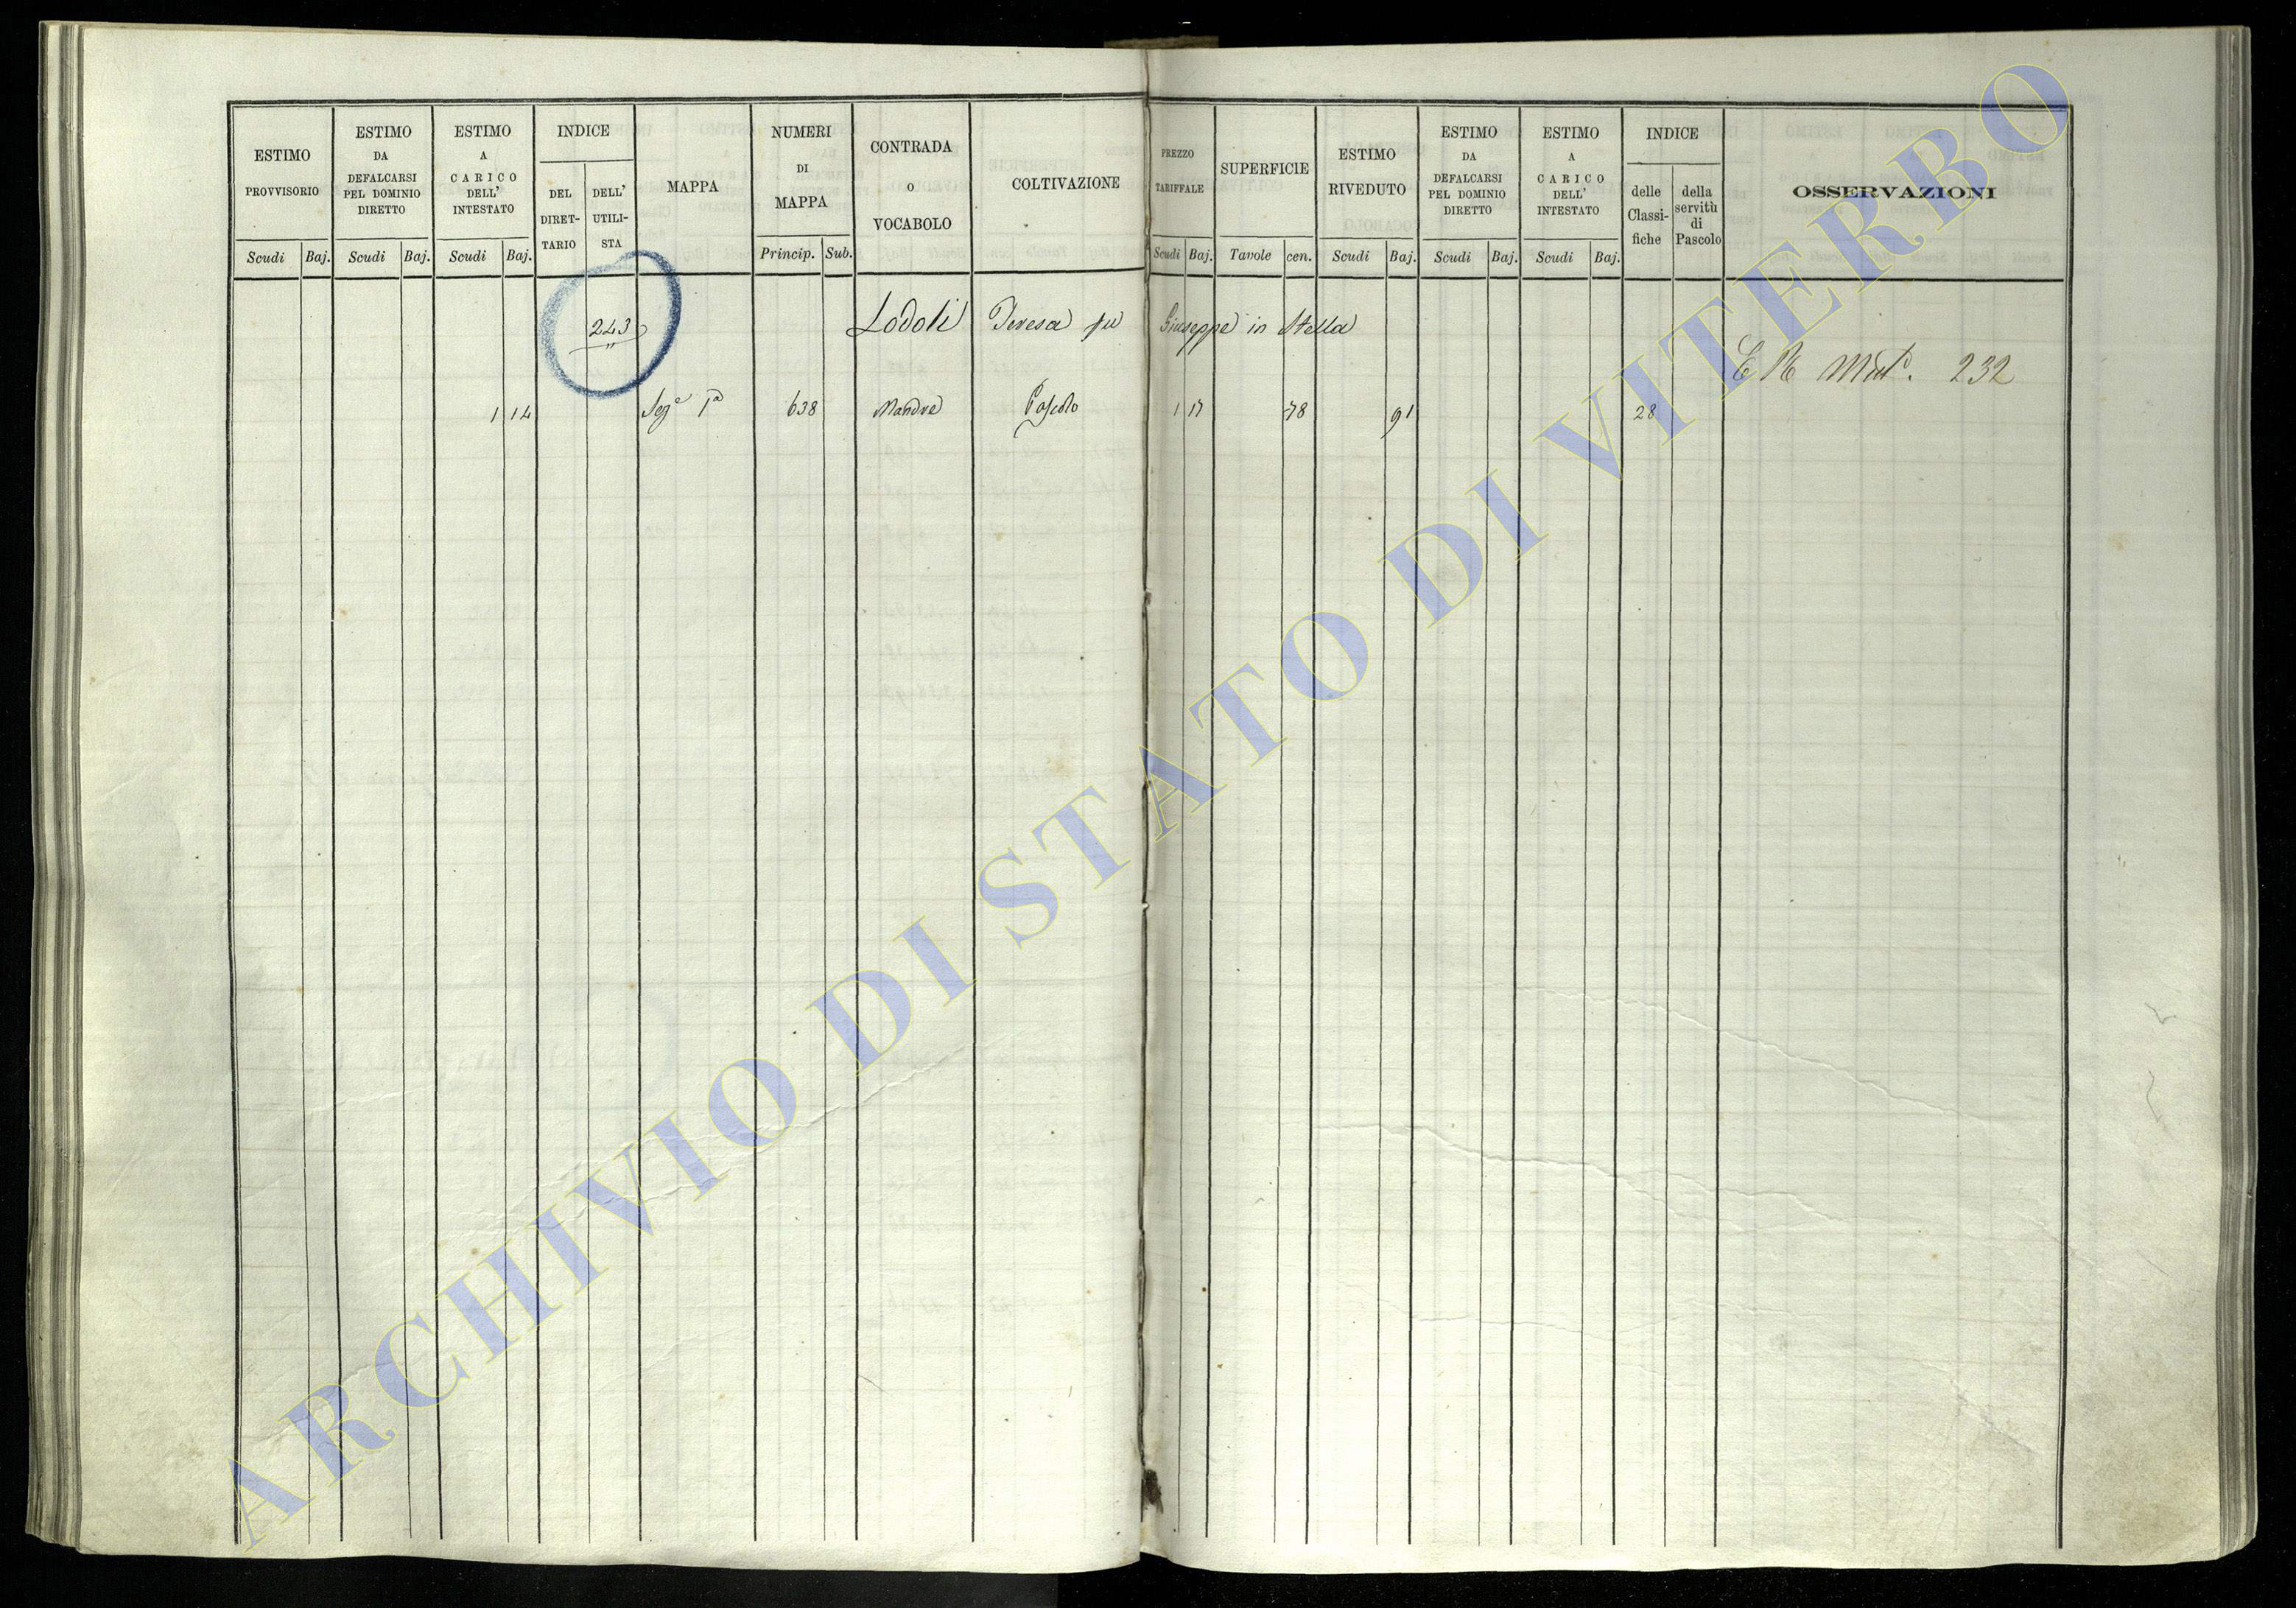 ESTIMO PROVVISORIO
Scudi Baj.
ESTIMO DA DEFALCARSI PEL DOMINIO DIRETTO
Scudi Baj.
ESTIMO A CARICO DELL' INTESTATO
Scudi Baj.
INDICE
DEL DIRET- TARIO
DELL' UTILI- STA
MAPPA
NUMERI DI MAPPA
Princip. Sub.
CONTRADA O VOCABOLO
COLTIVAZIONE
PREZZO TARIFFALE
Scudi Baj.
SUPERFICIE
Tavole cen.
ESTIMO RIVEDUTO
Scudi Baj.
ESTIMO DA DEFALCARSI PEL DOMINIO DIRETTO
Scudi Baj.
ESTIMO A CARICO DELL' INTESTATO
Scudi Baj.
INDICE
delle Classi- fiche
della servitù di Pascolo
OSSERVAZIONI
243 Lodoli Teresa fu Giuseppe in Stella
232
1 14 Seze 1a 638 Mandre Pascolo 1 17 78 91 28
ARCHIVIO DI STATO DI VITERBO